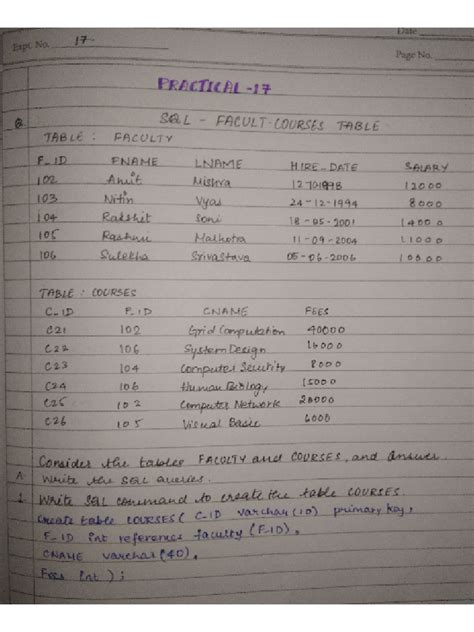 Date
Expt. No. 17
Page No.
PRACTICAL-17
Q. SQL - FACULT-COURSES TABLE
TABLE : FACULTY
F_ID FNAME LNAME HIRE_DATE SALARY
102 Amit Mishra 12-10-1998 12000
103 Nitin Vyas 24-12-1994 8000
104 Rakshit Soni 18-05-2001 14000
105 Rashmi Malhotra 11-09-2004 11000
106 Sulekha Srivastava 05-06-2006 10000
TABLE : COURSES
C_ID F_ID CNAME FEES
C21 102 Grid Computation 40000
C22 106 System Design 16000
C23 104 Computer Security 8000
C24 106 Human Biology 15000
C25 102 Computer Network 20000
C26 105 Visual Basic 6000
Consider the tables FACULTY and COURSES, and answer.
A. Write the SQL queries.
1. Write SQL command to create the table COURSES.
Create table COURSES( C_ID varchar(10) primary key,
F_ID int references faculty (F_ID),
CNAME varchar(40),
Fees int );